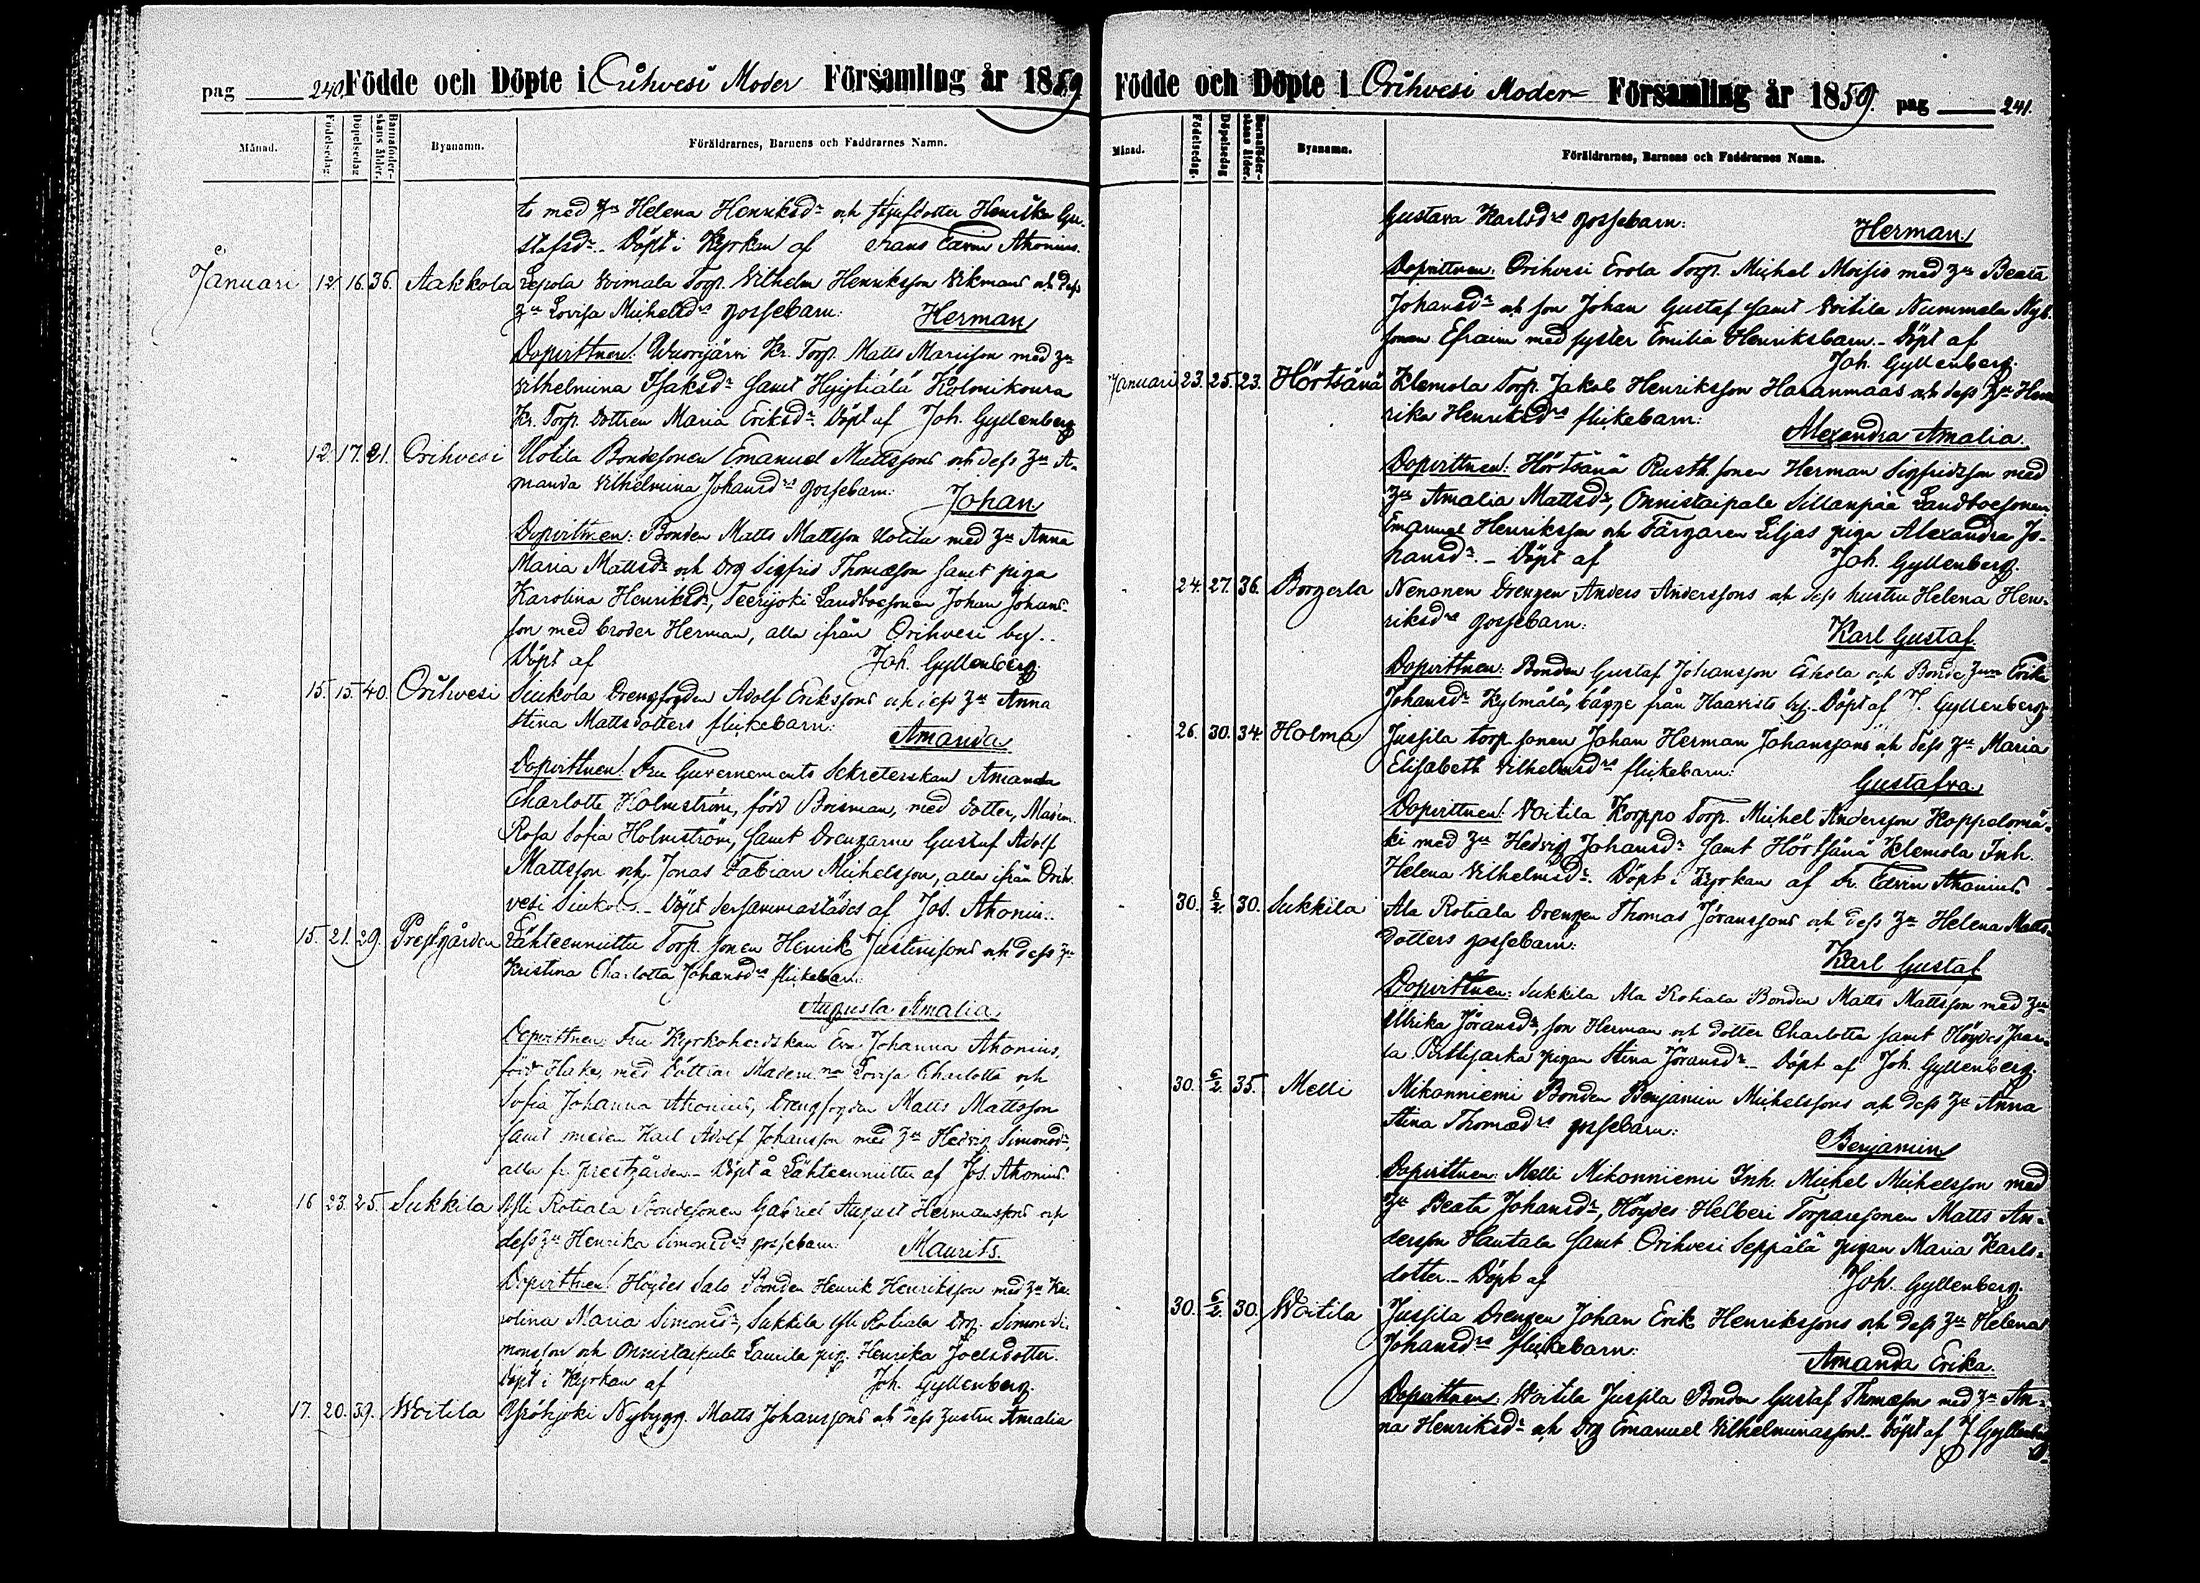 pag 240. Födde och Döpte i Orihvesi Moder Församling år 1859
Månad. Födelsedag. Döpelsedag Barnaföderskans ålder. Byanamn. Föräldrarnes, Barnens och Faddrarnes Namn.
to med Hu Helena Henriksdr och Henrika Gu-
stafsdr. Döpt i Kyrkan af Frans Edvin Ahonius.
Januari 12 16. 36. Aakkola Torp. Vilhelm Henriksson Vikmans och dess
Hu Lovisa Michelsdrs gossebarn: Herman
Dopvittnen: Wuorijärvi Kr. Torp. Matts Mattsson med Hu
Vilhelmina Isaksdr samt Hyyttiälä
Kr. Torp. dottren Maria Eriksdr. Döpt af Joh. Gyllenberg
12. 17. 21. Orihvesi Uotila Bondesonen Emanuel Mattssons och dess Hu A-
manda Vilhelmina Johansdrs gossebarn: Johan
Dopvittnen: Bonden Matts Mattsson Uotila med Hu Anna
Maria Mattsdr och Drg Sigfrid Thomasson samt piga
Karolina Henriksdr, Teerijoki Landboesonen Johan Johans-
son med broder Herman, alla ifrån Orihvesi by.
Döpt af Joh. Gyllenberg.
15. 15. 40. Orihvesi Siukola Drengfogden Adolf Erikssons och dess Hu Anna
Stina Mattsdotters flickebarn: Amanda
Dopvittnen: Fru Guvernements Sekreterskan Amanda
Charlotte Holmström, född Brisman, med dotter, Mad:m
Rosa Sofia Holmström, samt Drengarne Gustaf Adolf
Mattsson och Jonas Fabian Michelsson, alla ifrån Orih-
vesi Siukola. Döpt dersammastädes af Jos. Ahonius.
15. 21. 29. Prestgården Lähteenmitta Torp. sonen Henrik Justinssons och dess Hu
Kristina Charlotta Johansdrs flickebarn:
Augusta Amalia
Dopvittnen: Fru Kyrkoherdskan Eva Johanna Ahonius,
född Hake, med döttrar Lovisa Charlotta och
Sofia Johanna Ahonius, Drengfogden Matts Mattsson
samt Karl Adolf Johansson med Hu Hedvig Simonsdr,
alla fr. prestgården. Döpt å Lähteenmitta af Jos. Ahonius.
16 23. 25. Sukkila Yli Rotiala Bondesonen Gabriel August Hermanssons och
dess Hu Henrika Simonsdrs gossebarn: Maurits.
Dopvittnen: Höydes Salo Bonden Henrik Henriksson med Hu Ka-
rolina Maria Simonsdr, Sukkila Yli Rotiala Drg. Simon Si-
monsson och Onnistaipale Laurila pig. Henrika Joelsdotter.
Döpt i Kyrkan af Joh. Gyllenberg.
17. 20. 39. Woitila Nybygg. Matts Johanssons och dess hustru Amalia
Födde och Döpte i Orihvesi Moder- Församling år 1859. pag 241.
Månad. Födelsedag. Döpelsedag Barnaföderskans ålder. Byanamn. Föräldrarnes, Barnens och Faddrarnes Namn.
Gustava Karlsdrs gossebarn: Herman
Dopvittnen: Orihvesi Erola Torp. Michel Moisio med Hu Beata
Johansdr och son Johan Gustaf samt Voitila Nummela Nyb.
sonen Efraim med syster Emilia Henriksbarn. Döpt af
Joh. Gyllenberg.
Januari 23. 25. 23. Hörtsänä Klemola Torp. Jakob Henriksson Haranmaas och dess Hu Hen-
rika Henriksdrs flickebarn: Alexandra Amalia.
Dopvittnen: Hörtsänä Rusth. sonen Herman Sigfridsson med
Hu Amalia Mattsdr, Onnistaipale Sillanpää Landboesonen
Emanuel Henriksson och Färgaren Liljas piga Alexandra Jo-
hansdr. Döpt af Joh. Gyllenberg.
24. 27. 36. Borgerla Nenonen Drengen Anders Anderssons och dess hustru Helena Hen-
riksdrs gossebarn: Karl Gustaf
Dopvittnen: Bonden Gustaf Johansson Eskola och Bonde Hun Erika
Johansdr Kylmälä, bägge från Haavisto by. Döpt af J. Gyllenberg
26. 30. 34. Holma Jussila torp sonen Johan Herman Johanssons och dess Hu Maria
Elisabeth Vilhelmsdrs flickebarn: Gustafva
Dopvittnen: Voitila Korppo Torp. Michel Andersson Koppelomä-
ki med Hu Hedvig Johansdr samt Hörtsänä Klemola Inh.
Helena Vilhelmsdr. Döpt i Kyrkan af Fr. Edvin Ahonius.
30. 6/2. 30. Sukkila Ala Rotiala Drengen Thomas Göranssons och dess Hu Helena Matts-
dotters gossebarn: Karl Gustaf
Dopvittnen: Sukkila Ala Rotiala Bonden Matts Mattsson med Hu
Ulrika Göransdr, son Herman och dotter Charlotta samt Höydes
pigan Stina Göransdr. Döpt af Joh. Gyllenberg.
30. 6/2. 35. Melli Mikonniemi Bonden Benjamin Michelssons och dess Hu Anna
Stina Thomædrs gossebarn: Benjamin
Dopvittnen: Melli Mikonniemi Inh. Michel Michelsson med
Hu Beata Johansdr, Höydes Helberi Torparesonen Matts An-
dersson Hautala samt Orihvesi Seppälä pigan Maria Karls-
dotter. Döpt af Joh. Gyllenberg.
30. 6/2. 30. Woitila Jussila Drengen Johan Erik Henrikssons och dess Hu Helena
Johansdrs flickebarn: Amanda Erika.
Dopvittnen: Woitila Jussila Bonden Gustaf Thomasson med Hu An-
na Henriksdr och Drg Emanuel Vilhelminasson. Döpt af J. Gyllenberg